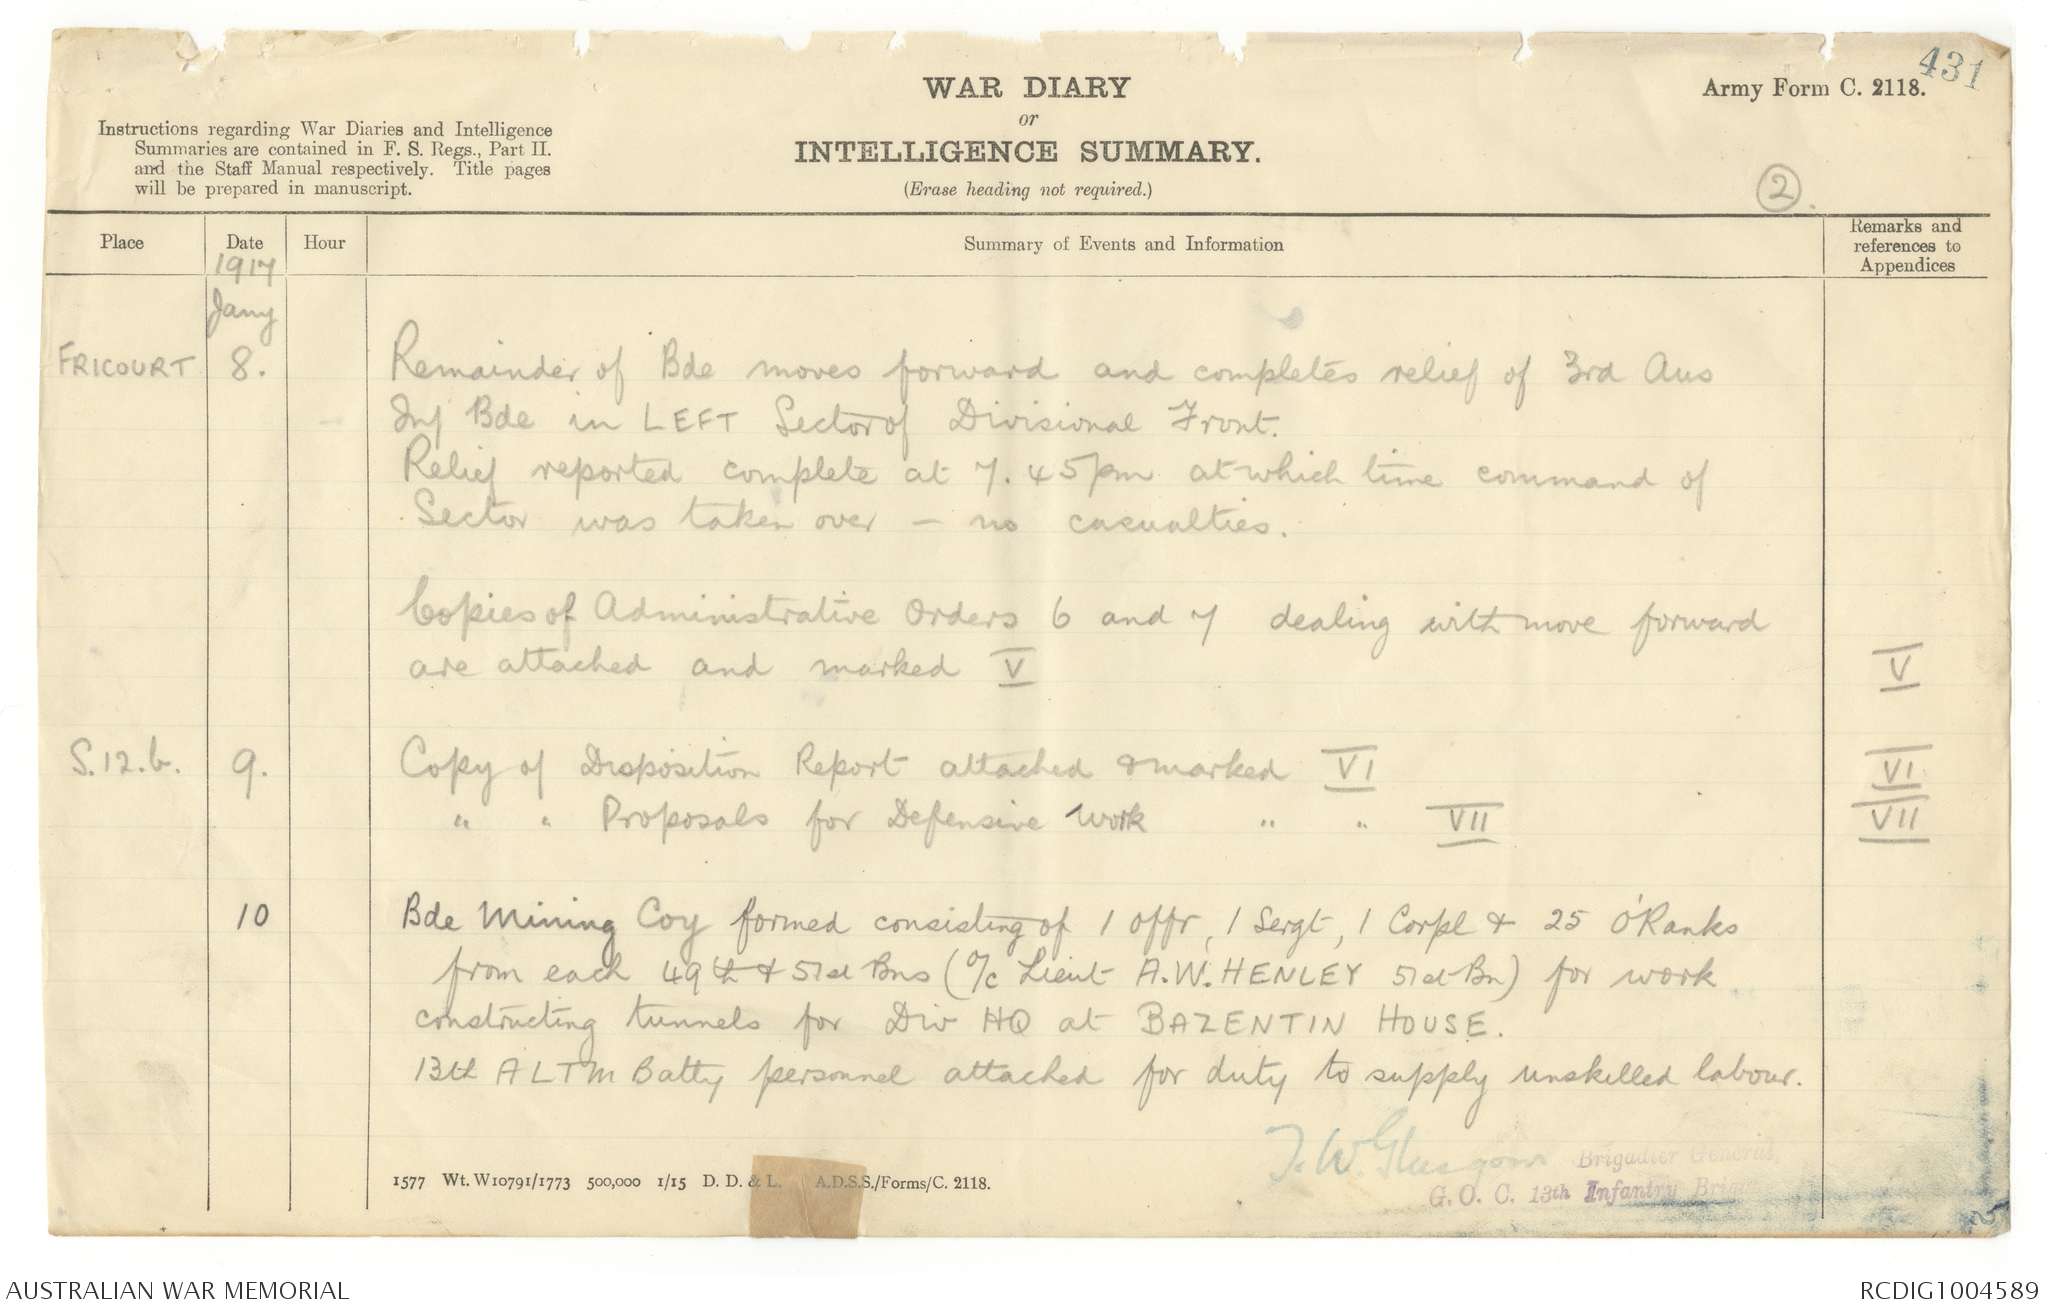 431
WAR DIARY
or
INTELLIGENCE SUMMARY.
(Erase heading not required.)
Army Form C. 2118.
Instructions regarding War Diaries and Intelligence
Summaries are contained in F. S. Regs., Part II.
and the Staff Manual respectively. Title pages
will be prepared in manuscript.
2.
Place Date Hour Summary of Events and Information Remarks and
references to
Appendices
1917
Jany
FRICOURT 8. Remainder of Bde moves forward and completes relief of 3rd Aus
Inf Bde in LEFT Sector of Divisional Front.
Relief reported complete at 7.45pm at which time command of
Sector was taken over – no casualties.
Copies of Administrative Orders 6 and 7 dealing with move forward
are attached and marked V V
S.12.b. 9. Copy of Disposition Report attached & marked VI VI
" " Proposals for Defensive Work " " VII VII
10 Bde Mining Coy formed consisting of 1 Offr, 1 Sergt, 1 Corpl & 25 O'Ranks
from each 49th & 51st Bns (O/c Lieut A.W. HENLEY 51st Bn) for work
constructing tunnels for Div HQ at BAZENTIN HOUSE.
13th ALTM Batty personnel attached for duty to supply unskilled labour.
T. W. Glasgow Brigadier General,
G. O. C. 13th Infantry
1577 Wt. W10791/1773 500,000 1/15 D. D. & L. A.D.S.S./Forms/C. 2118.
AUSTRALIAN WAR MEMORIAL RCDIG1004589